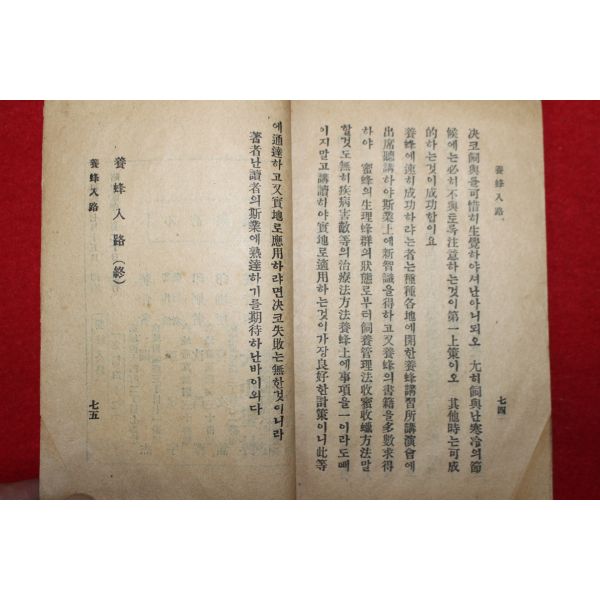 養蜂入路
七四
決코飼與을可惜히生覺하야셔난아니되오 尤히飼與난寒冷의節
候에는必히不與토록注意하는것이第一上策이오 其他時는可成
的하는것이成功함이요
養蜂에速히成功하랴는者는種種各地에開한養蜂講習所講演會에
出席聽講하야斯業上에新智識을得하고又養蜂의書籍을多數求得
하야 蜜蜂의生理蜂群의狀態로부터飼養管理法收蜜收蠟方法말
할것도無히疾病害敵等의治療法方法養蜂上에事項을一이라도빼
이지말고講讀히야實地로適用하는것이가장良好한計策이니此等
에通達하고又實地로應用하랴면決코失敗는無한것이니라
著者난讀者의斯業에熟達하기를期待하난바이외다
養蜂入路(終)
養蜂入路
七五